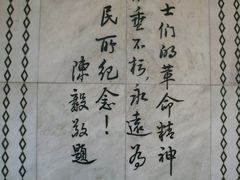 士们的革命精神
垂不朽,永遠为
民所纪念!
陳毅敬題